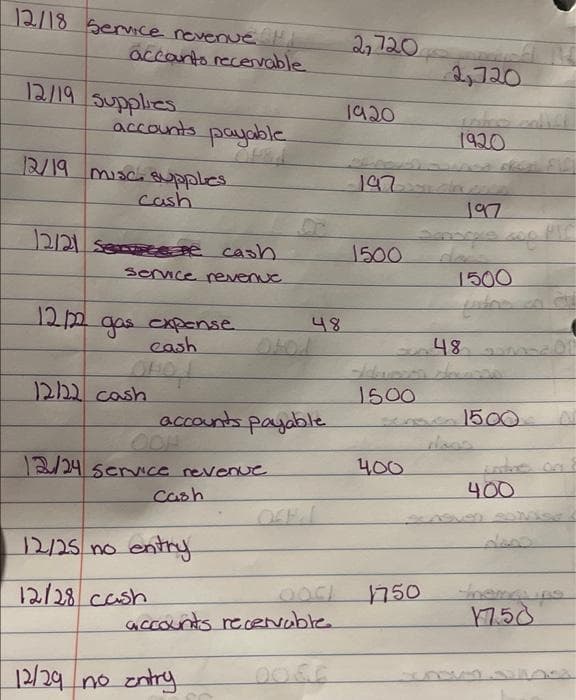 12/18 service revenue 2,720
accounts receivable 2,720
12/19 supplies 1920
accounts payable 1920
12/19 misc. supplies 197
cash 197
12/21 cash 1500
service revenue 1500
12/22 gas expense 48
cash 48
12/22 cash 1500
accounts payable 1500
12/24 service revenue 400
cash 400
12/25 no entry
12/28 cash 1750
accounts receivable 1750
12/29 no entry